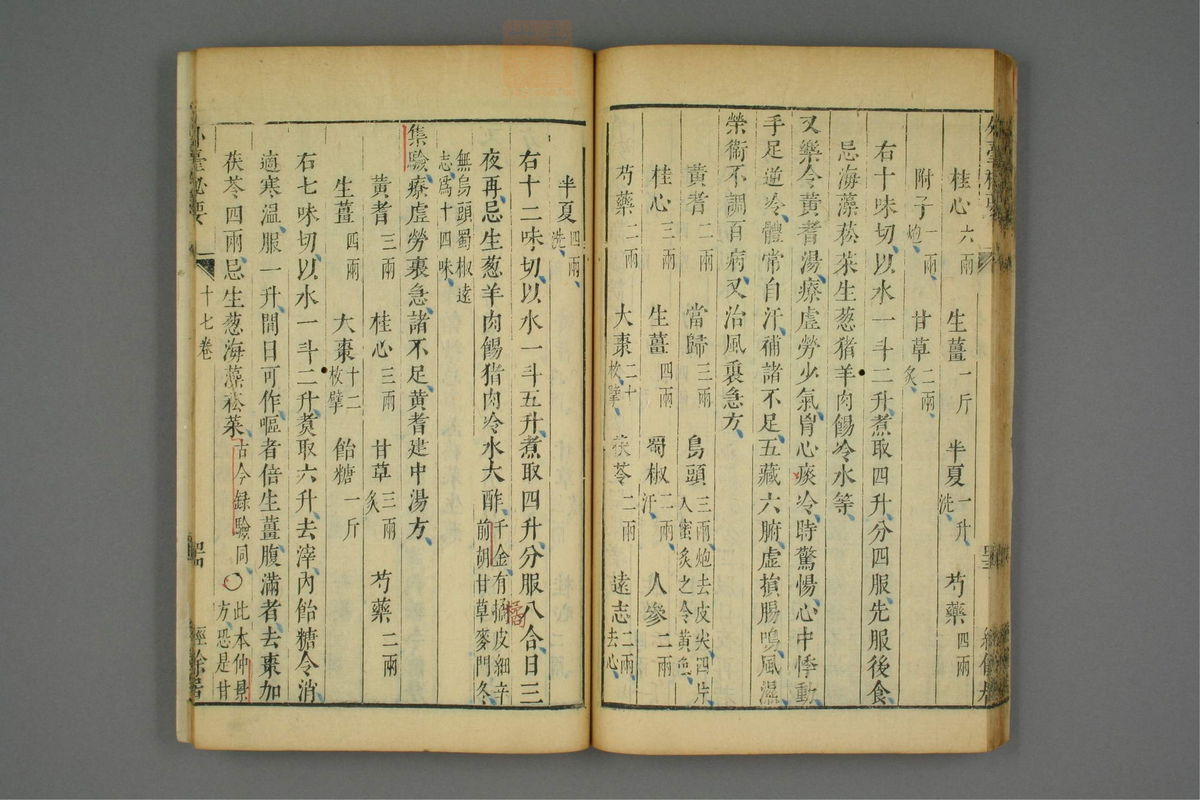 桂心六兩 生薑一斤 半夏一升洗 芍藥四兩
附子一兩炮 甘草二兩炙
右十味切以水一斗二升煮取四升分四服先服後食
忌海藻菘菜生葱猪羊肉餳冷水等
又樂令黃耆湯療虛勞少氣胷心痰冷時驚惕心中悸動
手足逆冷體常自汗補諸不足五藏六腑虛損腸鳴風濕
榮衞不調百病又治風裏急方
黃耆二兩 當歸三兩 烏頭三兩炮去皮尖四片入蜜炙之令黃色
桂心三兩 生薑四兩 蜀椒二兩汗 人參二兩
芍藥二兩 大棗二十枚擘 茯苓二兩 遠志二兩去心
半夏四兩洗
右十二味切以水一斗五升煮取四升分服八合日三
夜再忌生葱羊肉餳猪肉冷水大酢千金有橘皮細辛前胡甘草麥門冬
無烏頭蜀椒遠志爲十四味
集驗療虛勞裏急諸不足黃耆建中湯方
黃耆三兩 桂心三兩 甘草三兩炙 芍藥二兩
生薑四兩 大棗十二枚擘 飴糖一斤
右七味切以水一斗二升煮取六升去滓內飴糖令消
適寒溫服一升間日可作嘔者倍生薑腹滿者去棗加
茯苓四兩忌生葱海藻菘菜古今録驗同〇此本仲景方恐是甘
外臺秘要 十七卷
橘